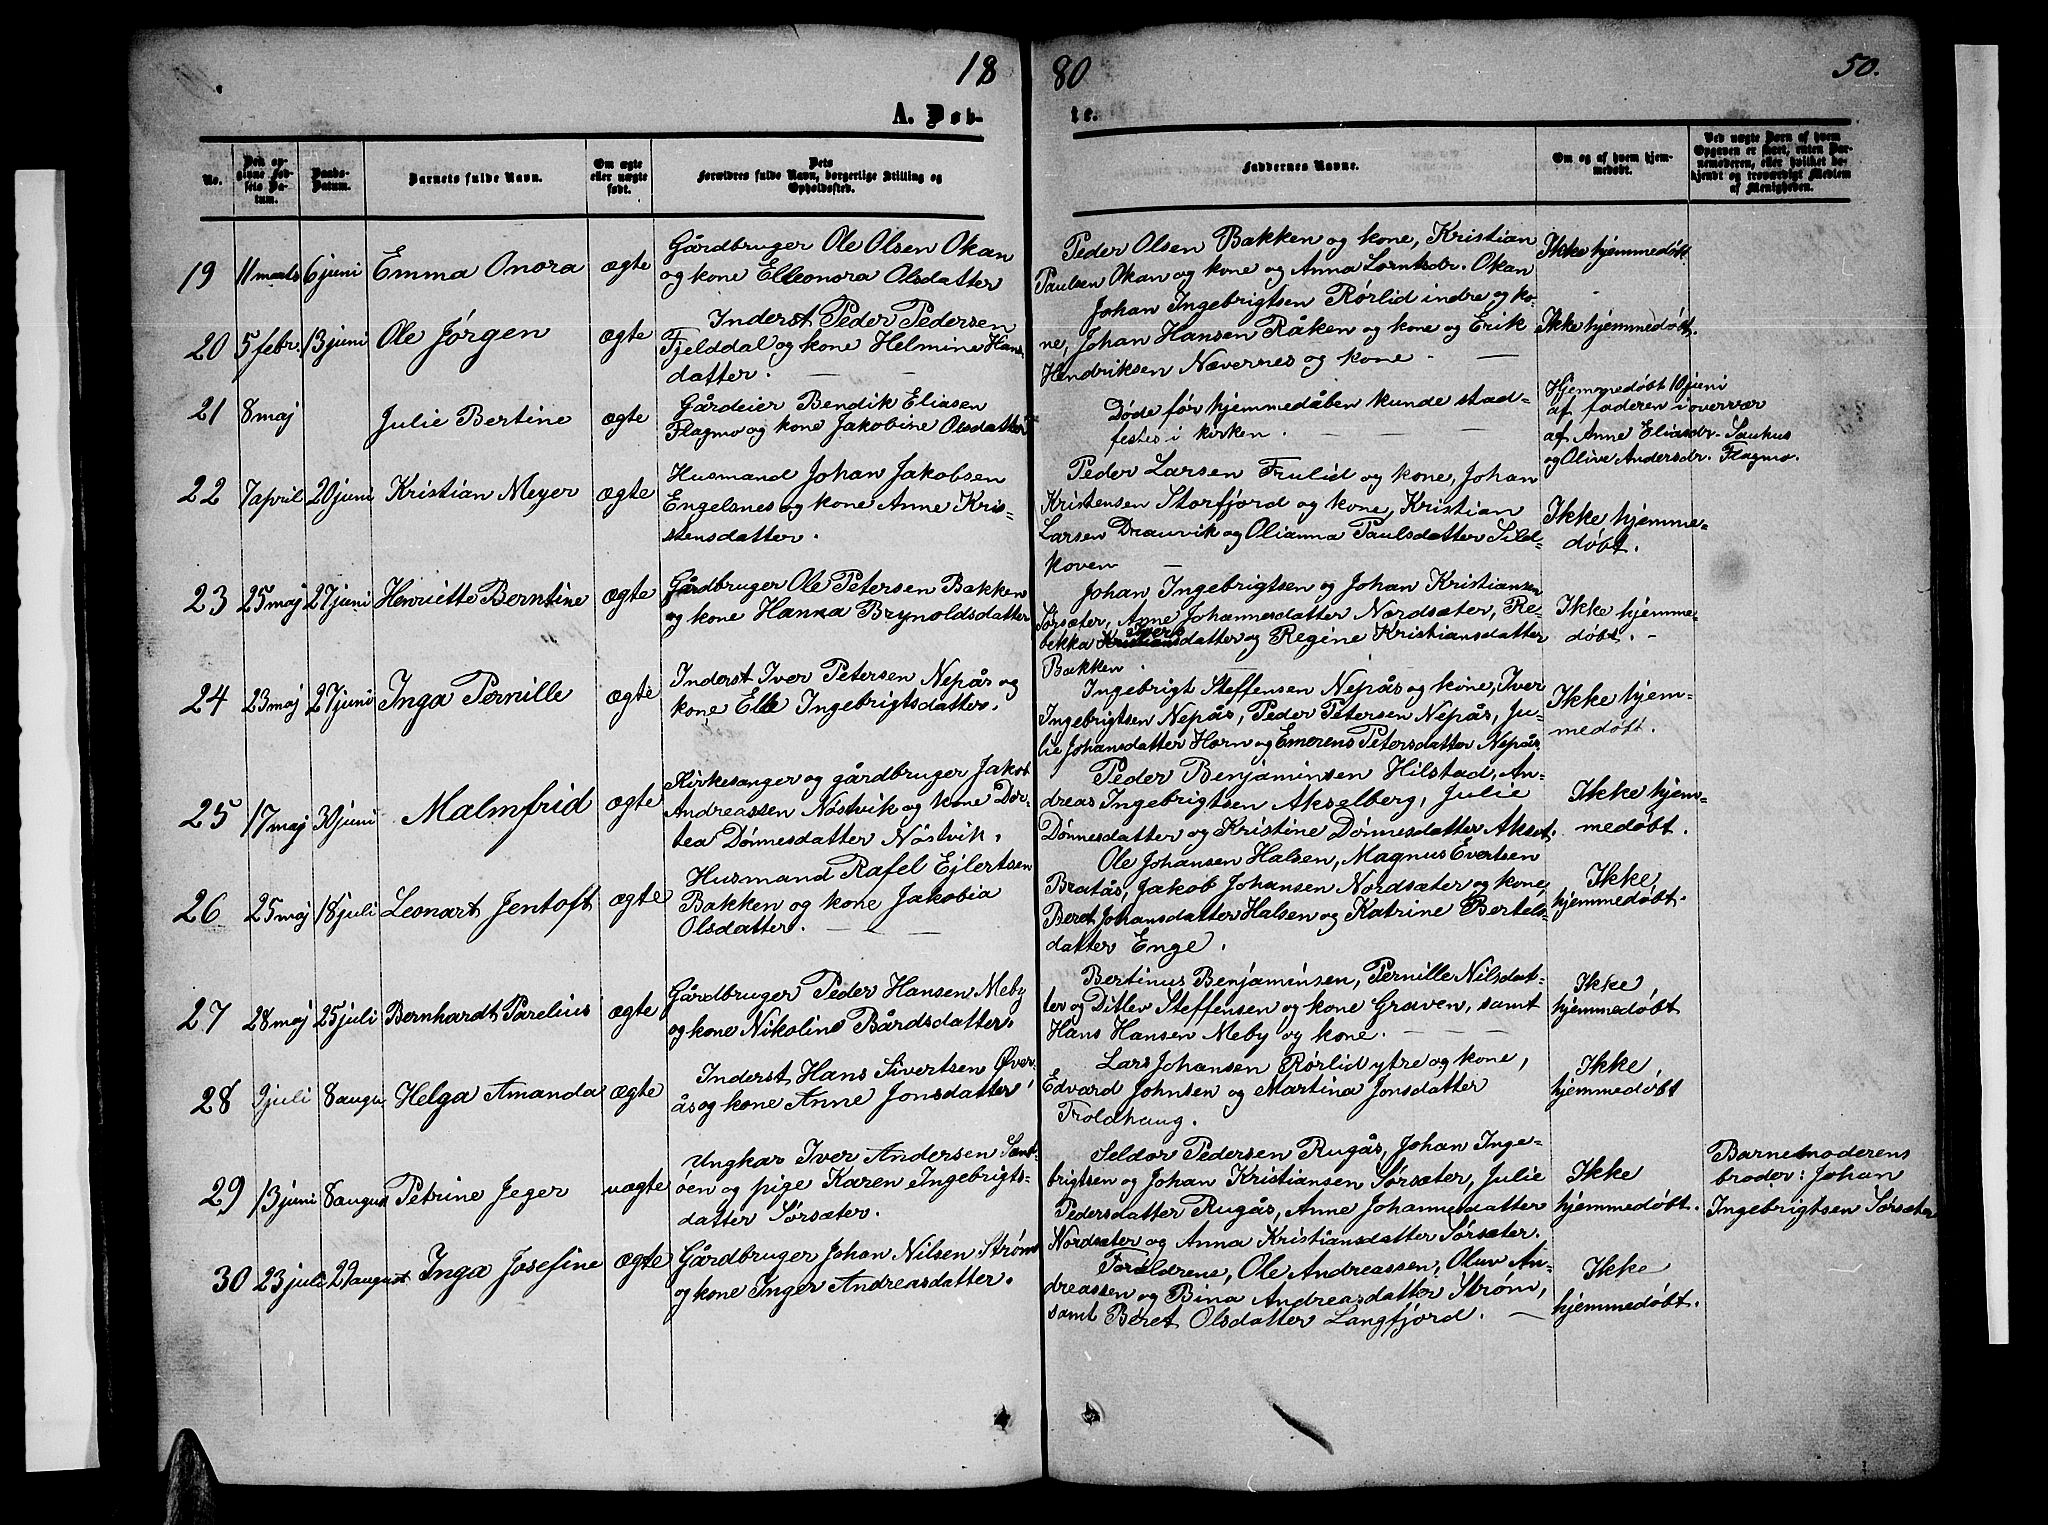 18 80 50.
A. Døb- te.
No.
Den opgivne Fødsels Datum.
Daabs-Datum.
Barnets fulde Navn.
Om ægte eller uægte født.
Dets Forældres fulde Navn, borgerlige Stilling og Opholdssted.
Faddernes Navne.
Om og af hvem hjemmedøbt.
Ved uægte Børn af hvem Opgaven er skeet, enten Barnemoderen, eller hvilket bekjendt og troværdigt Medlem af Menigheden.
19 11 marts 6 juni Emma Onora ægte
Gårdbruger Ole Olsen Okan
og kone Elleonora Olsdatter
Peder Olsen Bakken og kone, Kristian
Paulsen Okan og kone og Anna Lorntsdr. Okan
Ikke hjemmedøbt.
20 5 febr. 13 juni Ole Jørgen ægte
Inderst Peder Pedersen
Fjelddal og kone Helmine Hans
datter.
Johan Ingebrigtsen Rørlid indre og ko-
ne, Johan Hansen Råken og kone og Erik
Hendriksen Nævernes og kone
Ikke hjemmedøbt.
21 8 maj Julie Bertine ægte
Gårdeier Bendik Eliasen
Flagmo og kone Jakobine Olsdatter
Døde før hjemmedåben kunde stad-
festes i kirken.
Hjemmedøbt 10 juni
af faderen i overvær
af Anne Eliasdr. Sauhus
og Olive Andersdr. Flagmo.
22 7 april 20 juni Kristian Meyer ægte
Husmand Johan Jakobsen
Engelsnes og kone Anne Kris-
stensdatter.
Peder Larsen Frulid og kone, Johan
Kristensen Storfjord og kone, Kristian
Larsen Drauvik og Olianna Paulsdatter Sild-
koven
Ikke hjemme-
døbt.
23 25 maj 27 juni Henriette Berntine ægte
Gårdbruger Ole Petersen Bakken
og kone Hanna Brynoldsdatter
Johan Ingebrigtsen og Johan Kristiansen
Sørsæter, Anne Johannesdatter Nordsæter, Re-
bekka Kristiansdatter og Regine Kristiansdatter
Bakken.
Ikke hjemme-
døbt.
24 23 maj 27 juni Inga Pernille ægte
Inderst Iver Petersen Nepås og
kone Elle Ingebrigtsdatter.
Ingebrigt Steffensen Nepås og kone, Iver
Ingebrigtsen Nepås, Peder Petersen Nepås, Ju-
lie Johansdatter Horn og Emerens Petersdatter Nepås
Ikke hjem-
medøbt.
25 17 maj 30 juni Malmfrid ægte
Kirkesanger og gårdbruger Jakob
Andreassen Nøstvik og kone Dor-
tea Dønnesdatter Nøstvik.
Peder Benjaminsen Hilstad, An-
dreas Ingebrigtsen Akselberg, Julie
Dønnesdatter og Kristine Dønnesdatter Akset.
Ikke hjem-
medøbt.
26 25 maj 18 juli Leonart Jentoft ægte
Husmand Rafel Ejlertsen
Bakken og kone Jakobia
Olsdatter.
Ole Johansen Halsen, Magnus Evertsen
Bratås, Jakob Johansen Nordsæter og kone
Beret Johansdatter Halsen og Katrine Bertels-
datter Enge.
Ikke
hjemmedøbt.
27 28 maj 25 juli Bernhardt Parelius ægte
Gårdbruger Peder Hansen Meby
og kone Nikoline Bårdsdatter.
Bertinus Benjaminsen, Pernille Nilsdat-
ter og Ditlev Steffensen og kone Graven, samt
Hans Hansen Meby og kone.
Ikke
hjemmedøbt
28 9 juli 8 augu Helga Amanda ægte
Inderst Hans Sivertsen Øver
ås og kone Anne Jonsdatter
Lars Johansen Rørlid ytre og kone,
Edvard Johnsen og Martina Jonsdatter
Troldhaug.
Ikke
hjemmedøbt
29 13 juni 8 august Petrine Jeger uægte
Ungkar Iver Andersen Sant-
øen og pige Karen Ingebrigts-
datter Sørsæter.
Seldor Pedersen Rugås, Johan Inge-
brigtsen og Johan Kristiansen Sørsæter, Julie
Pedersdatter Rugås, Anne Johannesdatter
Nordsæter og Anna Kristiansdatter Sørsæter.
Ikke
hjemmedøbt.
Barnemoderens
broder: Johan
Ingebrigtsen Sørsæter
30 23 juli 29 august Inga Josefine ægte
Gårdbruger Johan Nilsen Strøm
og kone Inger Andreasdatter.
Forældrene, Ole Andreassen, Oluv An-
dreassen og Bina Andreasdatter Strøm,
samt Beret Olsdatter Langfjord.
Ikke
hjemmedøbt.